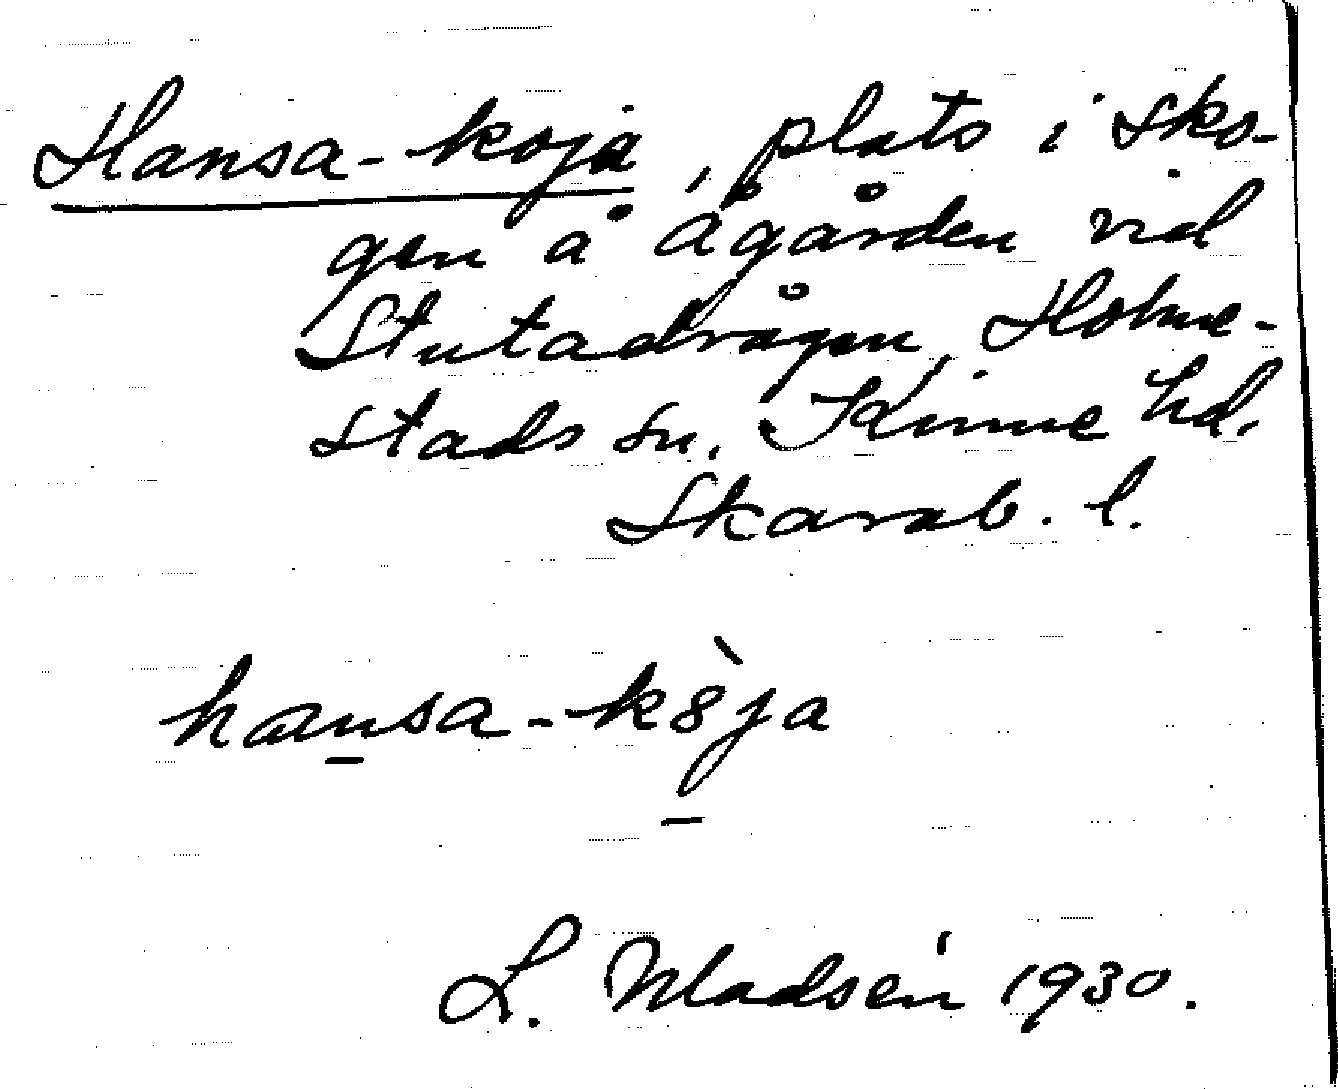 Hansa-koja, plats i sko-
gen å Ågården vid
Stutadrågen, Holme-
stads sn. Kinne hd.
Skarab. l.
hansa-köja
L. Madsén 1930.